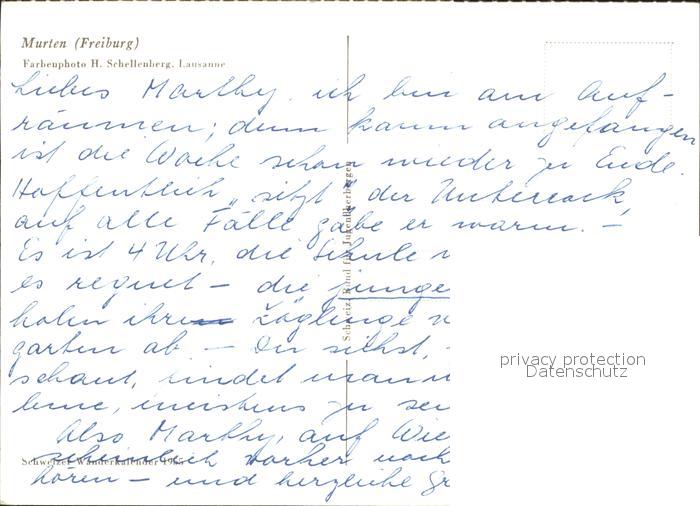 Murten (Freiburg)
Farbenphoto H. Schellenberg, Lausanne
Liebes Marthy, ich bin am Auf-
räumen; denn kaum angefangen
ist die Woche schon wieder zu Ende.
Hoffentlich „sitzt" der Unterrock,
auf alle Fälle gäbe er warm. –
Es ist 4 Uhr, die Schule
es regnet – die junge
holen ihre Zöglinge
garten ab. – Du siehst,
schaut, findet man
lene, meistens zu sei
Also Marthy, auf Wie
scheinlich vorher noch
hören – und herzliche Gr
Schweizer Wanderkalender 1965
Schweiz. Bund für Jugendherbergen
privacy protection
Datenschutz